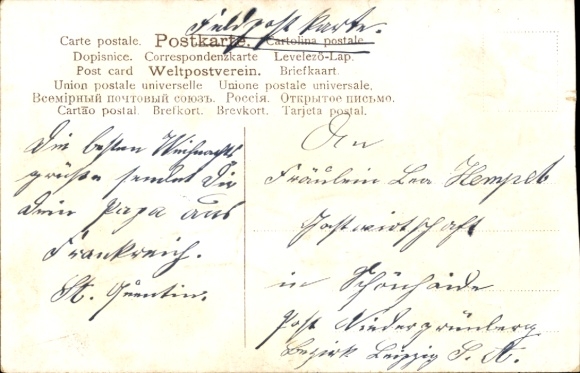 Feldpostkarte.
Carte postale. Postkarte. Cartolina postale.
Dopisnice. Correspondenzkarte Levelező-Lap.
Post card Weltpostverein. Briefkaart.
Union postale universelle Unione postale universale,
Всемірный почтовый союзъ. Россія. Открытое письмо.
Cartão postal. Brefkort. Brevkort. Tarjeta postal.
Die besten Weihnachts
grüße sendet Dir
Dein Papa aus
Frankreich.
St. Quentin.
An
Fräulein Lea Hempel
Gastwirtschaft
in Schönhaide
Post Niedergrünberg
Bezirk Leipzig S. A.